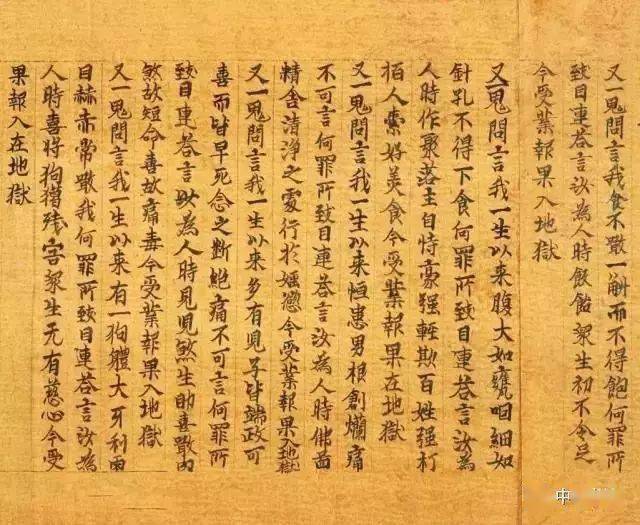 又一鬼問言我食不噉一斛而不得飽何罪所
致目連荅言汝為人時飯飴眾生初不令足
今受業報果入地獄
又一鬼問言我一生以来腹大如甕咽細如
針孔不得下食何罪所致目連荅言汝為
人時作聚落主自恃豪强輕欺百姓强打
栢人索好美食今受業報果在地獄
又一鬼問言我一生以来恒患男根創爛痛
不可言何罪所致目連荅言汝為人時佛啚
精舍清淨之處行於婬慾今受業報果入地獄
又一鬼問言我一生以来多有兒子皆端政可
善而皆早死念之斷絶痛不可言何罪所
致目連荅言以為人時見兒煞生助喜噉肉
煞故短命喜故痛毒今受業報果入地獄
又一鬼問言我一生以来有一狗體大牙利兩
目赫赤常噉我何罪所致目連荅言汝為
人時喜將狗獵残害眾生无有慈心今受
果報入在地獄
中